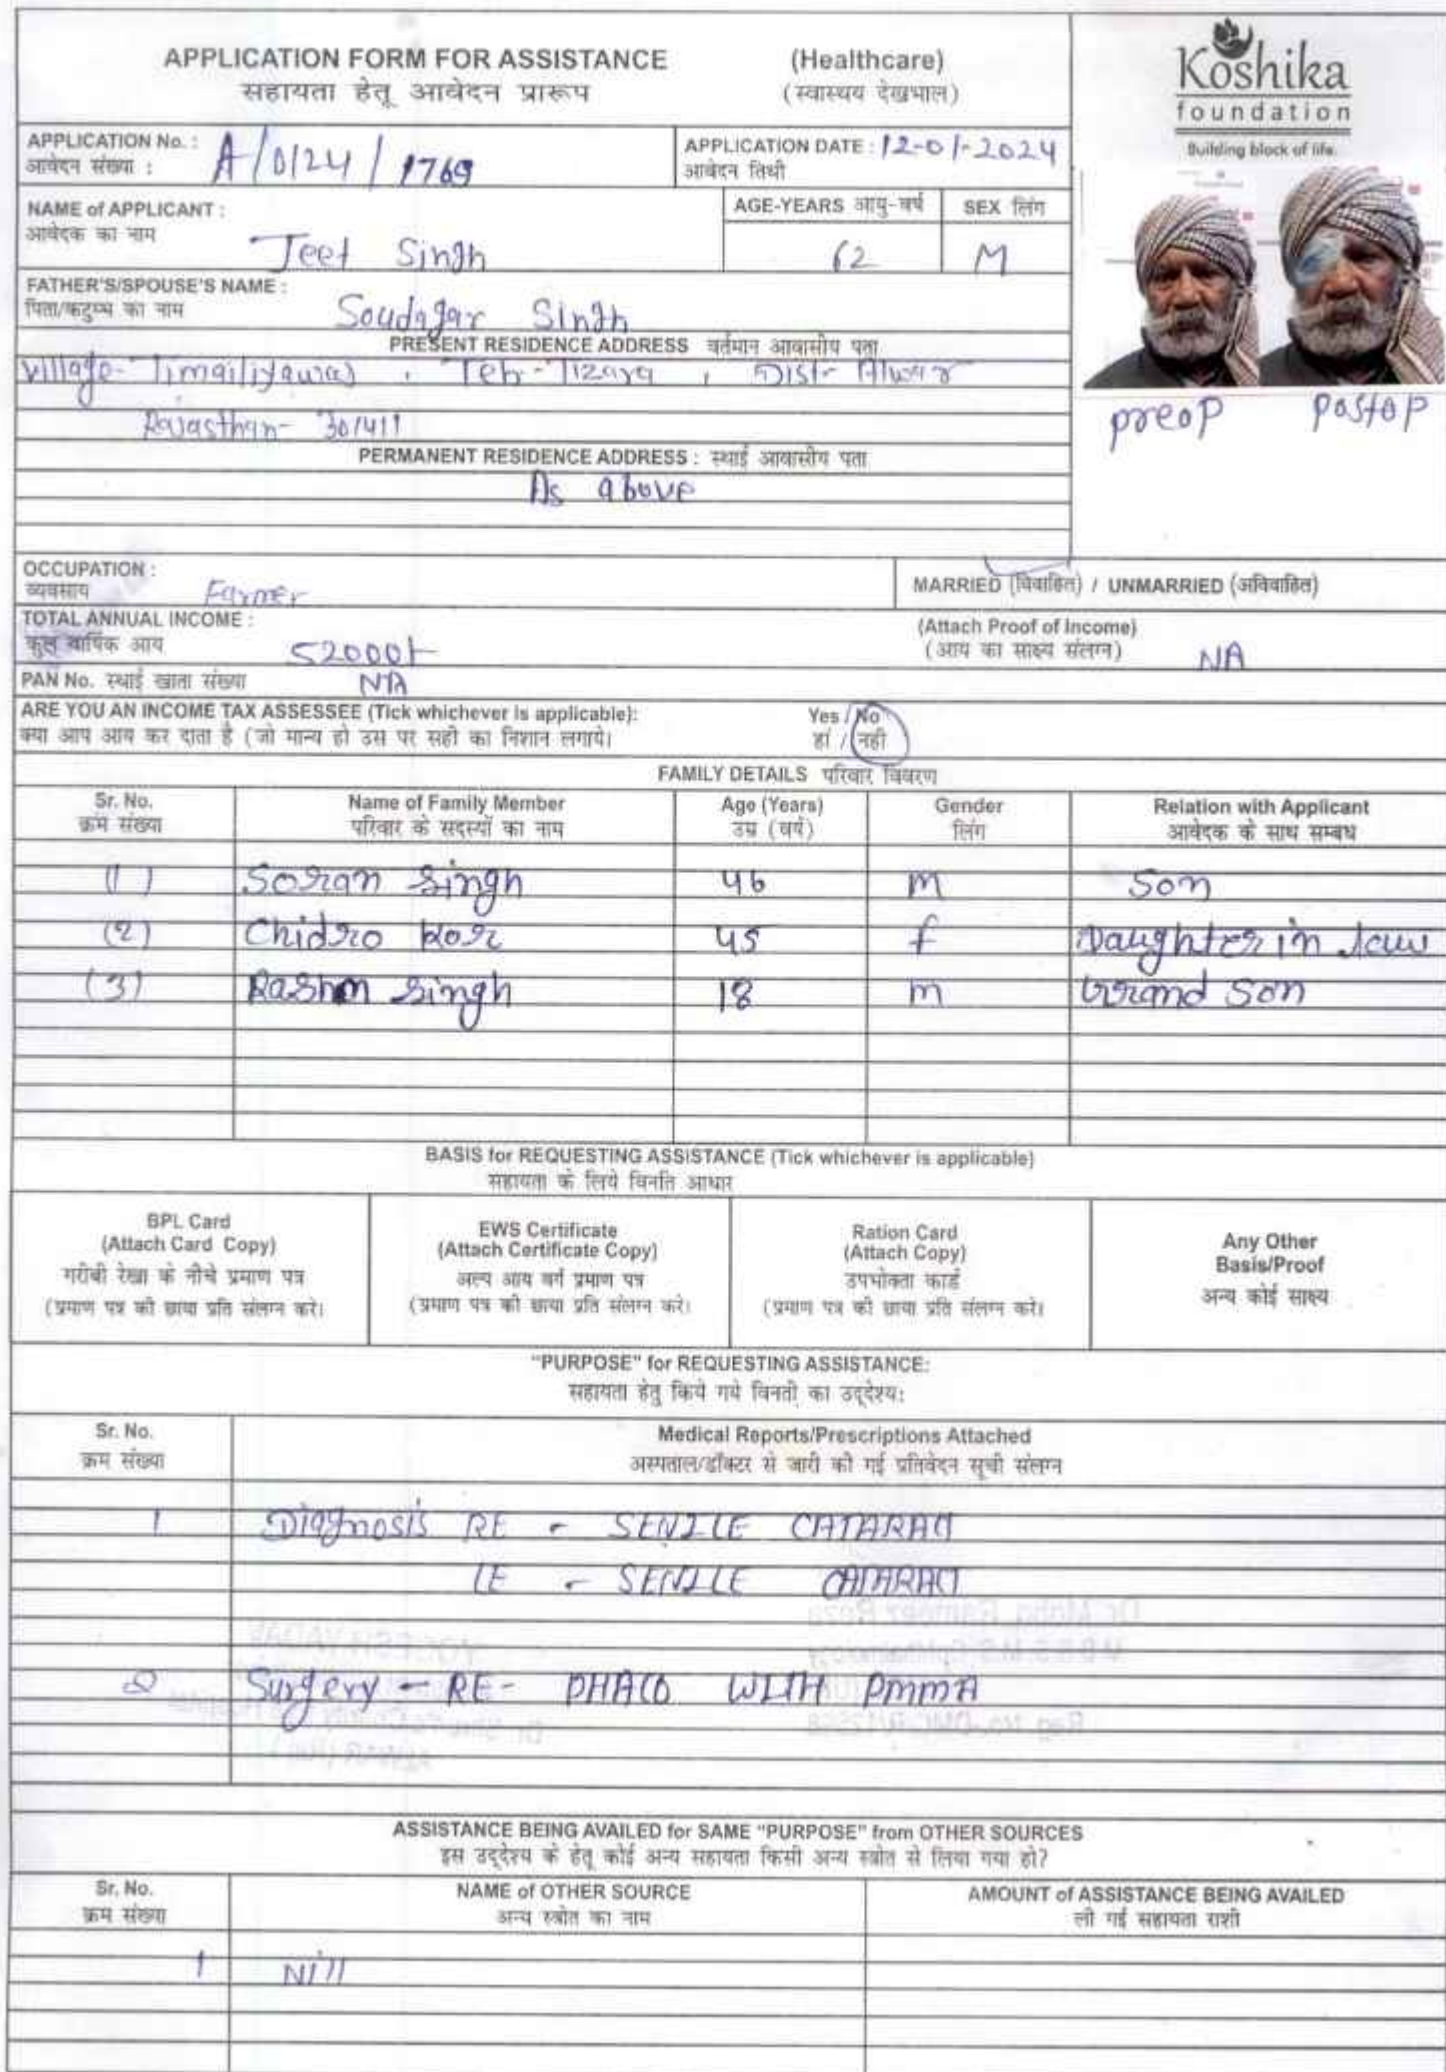 APPLICATION FORM FOR ASSISTANCE (Healthcare)
सहायता हेतू आवेदन प्रारूप (स्वास्थय देखभाल)
Koshika
foundation
Building block of life.
APPLICATION No. : A/0124/1769
आवेदन संख्या :
APPLICATION DATE : 12-01-2024
आवेदन तिथी
NAME of APPLICANT :
आवेदक का नाम
Jeet Singh
AGE-YEARS आयु-वर्ष
62
SEX लिंग
M
FATHER'S/SPOUSE'S NAME :
पिता/कटुम्ब का नाम
Soudagar Singh
PRESENT RESIDENCE ADDRESS वर्तमान आवासीय पता
Village- , Teh- Tizara , Dist- Alwar
Rajasthan- 301411
preop postop
PERMANENT RESIDENCE ADDRESS : स्थाई आवासीय पता
As above
OCCUPATION :
व्यवसाय Farmer
MARRIED (विवाहित) / UNMARRIED (अविवाहित)
TOTAL ANNUAL INCOME :
कुल वार्षिक आय 52000/-
(Attach Proof of Income)
(आय का साक्ष्य संलग्न) NA
PAN No. स्थाई खाता संख्या NA
ARE YOU AN INCOME TAX ASSESSEE (Tick whichever is applicable): Yes / No
क्या आप आय कर दाता है (जो मान्य हो उस पर सही का निशान लगाये। हां / नही
FAMILY DETAILS परिवार विवरण
Sr. No. Name of Family Member Age (Years) Gender Relation with Applicant
क्रम संख्या परिवार के सदस्यों का नाम उम्र (वर्ष) लिंग आवेदक के साथ सम्बंध
(1) Soran Singh 46 m Son
(2) Chidro Kor 45 f Daughter in law
(3) Rashm Singh 18 m Grand Son
BASIS for REQUESTING ASSISTANCE (Tick whichever is applicable)
सहायता के लिये विनति आधार
BPL Card
(Attach Card Copy)
गरीबी रेखा के नीचे प्रमाण पत्र
(प्रमाण पत्र की छाया प्रति संलग्न करे।
EWS Certificate
(Attach Certificate Copy)
अल्प आय वर्ग प्रमाण पत्र
(प्रमाण पत्र की छाया प्रति संलग्न करे।
Ration Card
(Attach Copy)
उपभोक्ता कार्ड
(प्रमाण पत्र की छाया प्रति संलग्न करे।
Any Other
Basis/Proof
अन्य कोई साक्ष्य
"PURPOSE" for REQUESTING ASSISTANCE:
सहायता हेतु किये गये विनती का उद्देश्य:
Sr. No. Medical Reports/Prescriptions Attached
क्रम संख्या अस्पताल/डॉक्टर से जारी की गई प्रतिवेदन सूची संलग्न
1 Diagnosis RE - SENILE CATARACT
LE - SENILE CATARACT
2 Surgery - RE- PHACO WITH PMMA
ASSISTANCE BEING AVAILED for SAME "PURPOSE" from OTHER SOURCES
इस उद्देश्य के हेतू कोई अन्य सहायता किसी अन्य स्त्रोत से लिया गया हो?
Sr. No. NAME of OTHER SOURCE AMOUNT of ASSISTANCE BEING AVAILED
क्रम संख्या अन्य स्त्रोत का नाम ली गई सहायता राशी
1 Nill